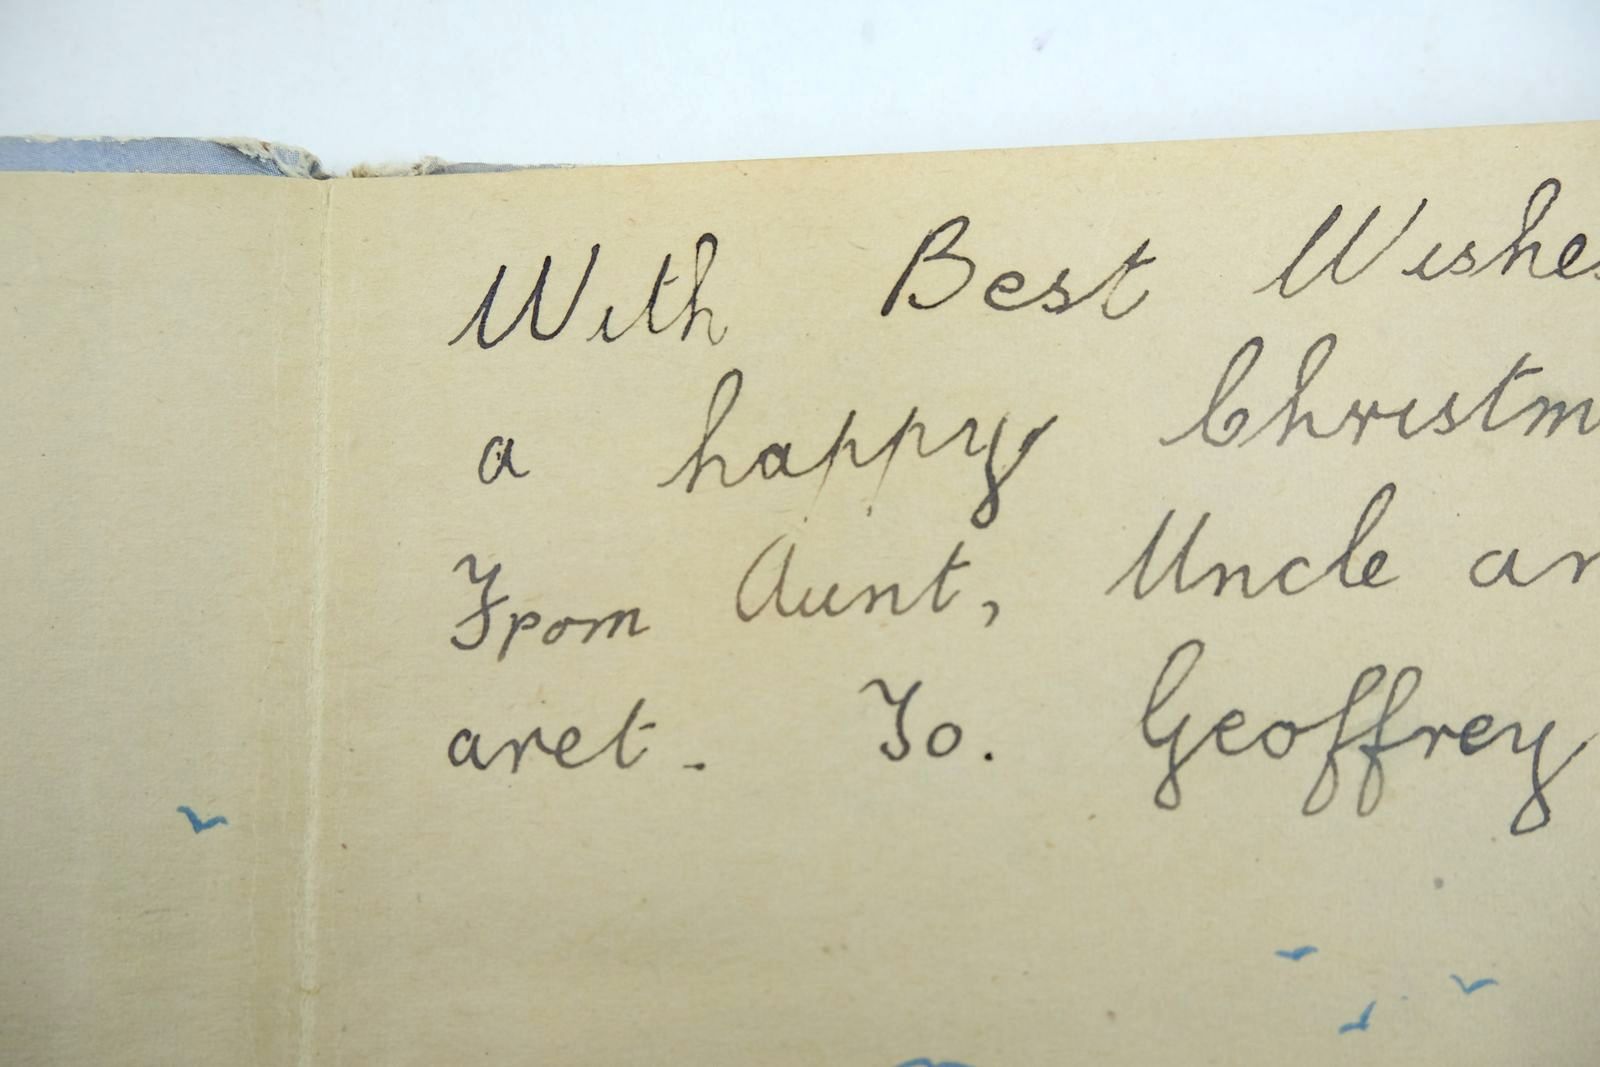 With Best Wishes
a happy Christm
From Aunt, Uncle an
aret. To. Geoffrey